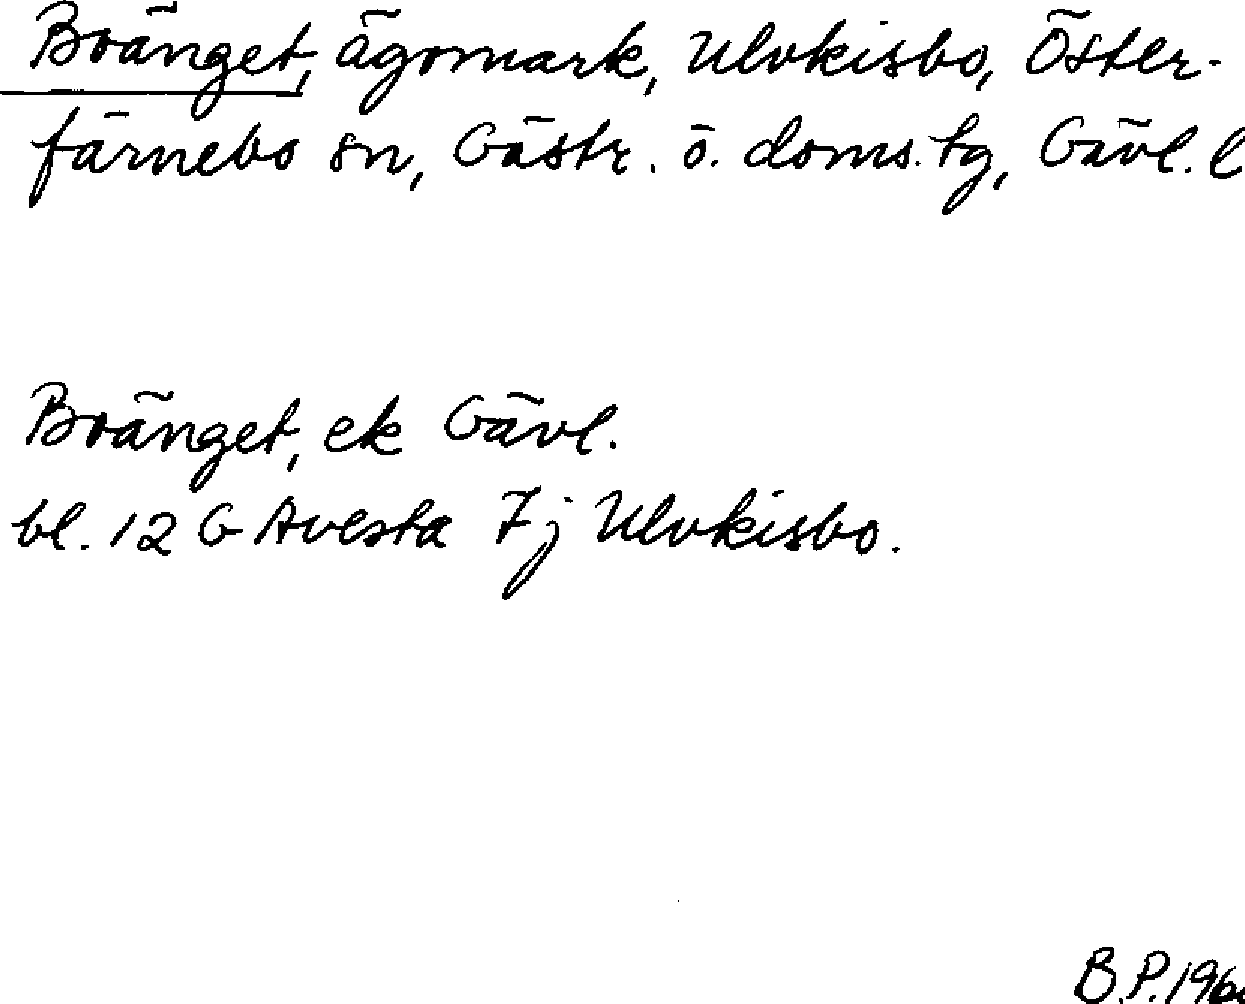 Broänget, ägomark, Ulvkisbo, Öster-
färnebo sn, Gästr. ö. doms. tg, Gävl. l
Broänget, ek Gävl.
bl. 12 G Avesta 7j Ulvkisbo.
B.P. 196